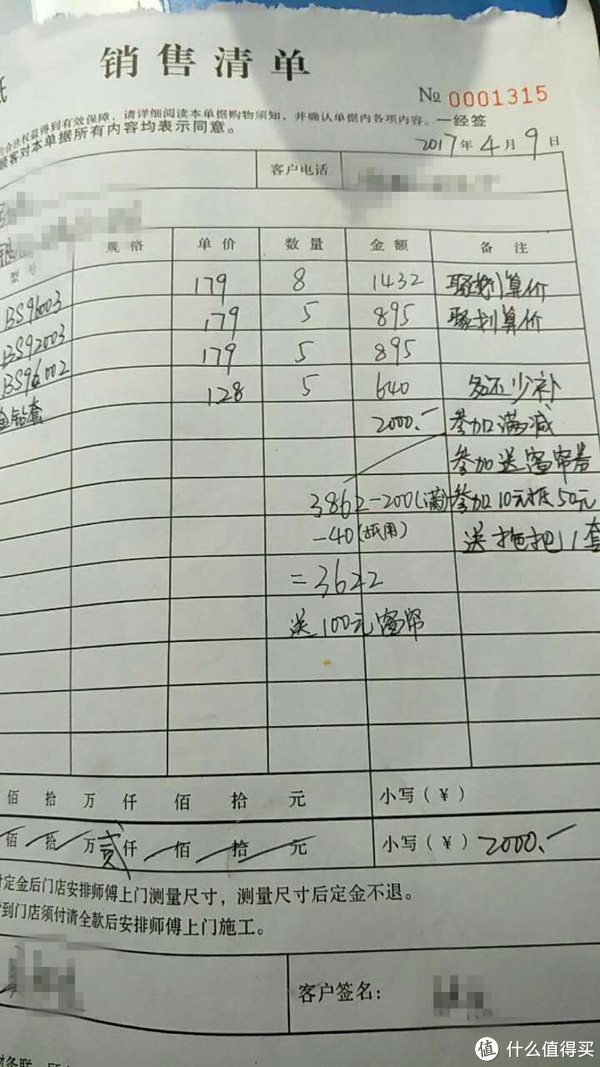 销售清单
№ 0001315
合法权益得到有效保障，请详细阅读本单据购物须知，并确认单据内各项内容。一经签
顾客对本单据所有内容均表示同意。
2017年4月9日
客户电话
型号 规格 单价 数量 金额 备注
BS96003 179 8 1432 聚划算价
BS92003 179 5 895 聚划算价
BS96002 179 5 895
钻套 128 5 640 多还少补
2000.- 参加满减
参加送窗帘券
3862-200(满) 参加10元抵50元
-40(抵用) 送拖把1套
=3622
送100元窗帘
佰 拾 万 仟 佰 拾 元 小写(￥)
佰 拾 万 贰 仟 佰 拾 元 小写(￥) 2000.-
定金后门店安排师傅上门测量尺寸，测量尺寸后定金不退。
到门店须付请全款后安排师傅上门施工。
客户签名：
值 什么值得买